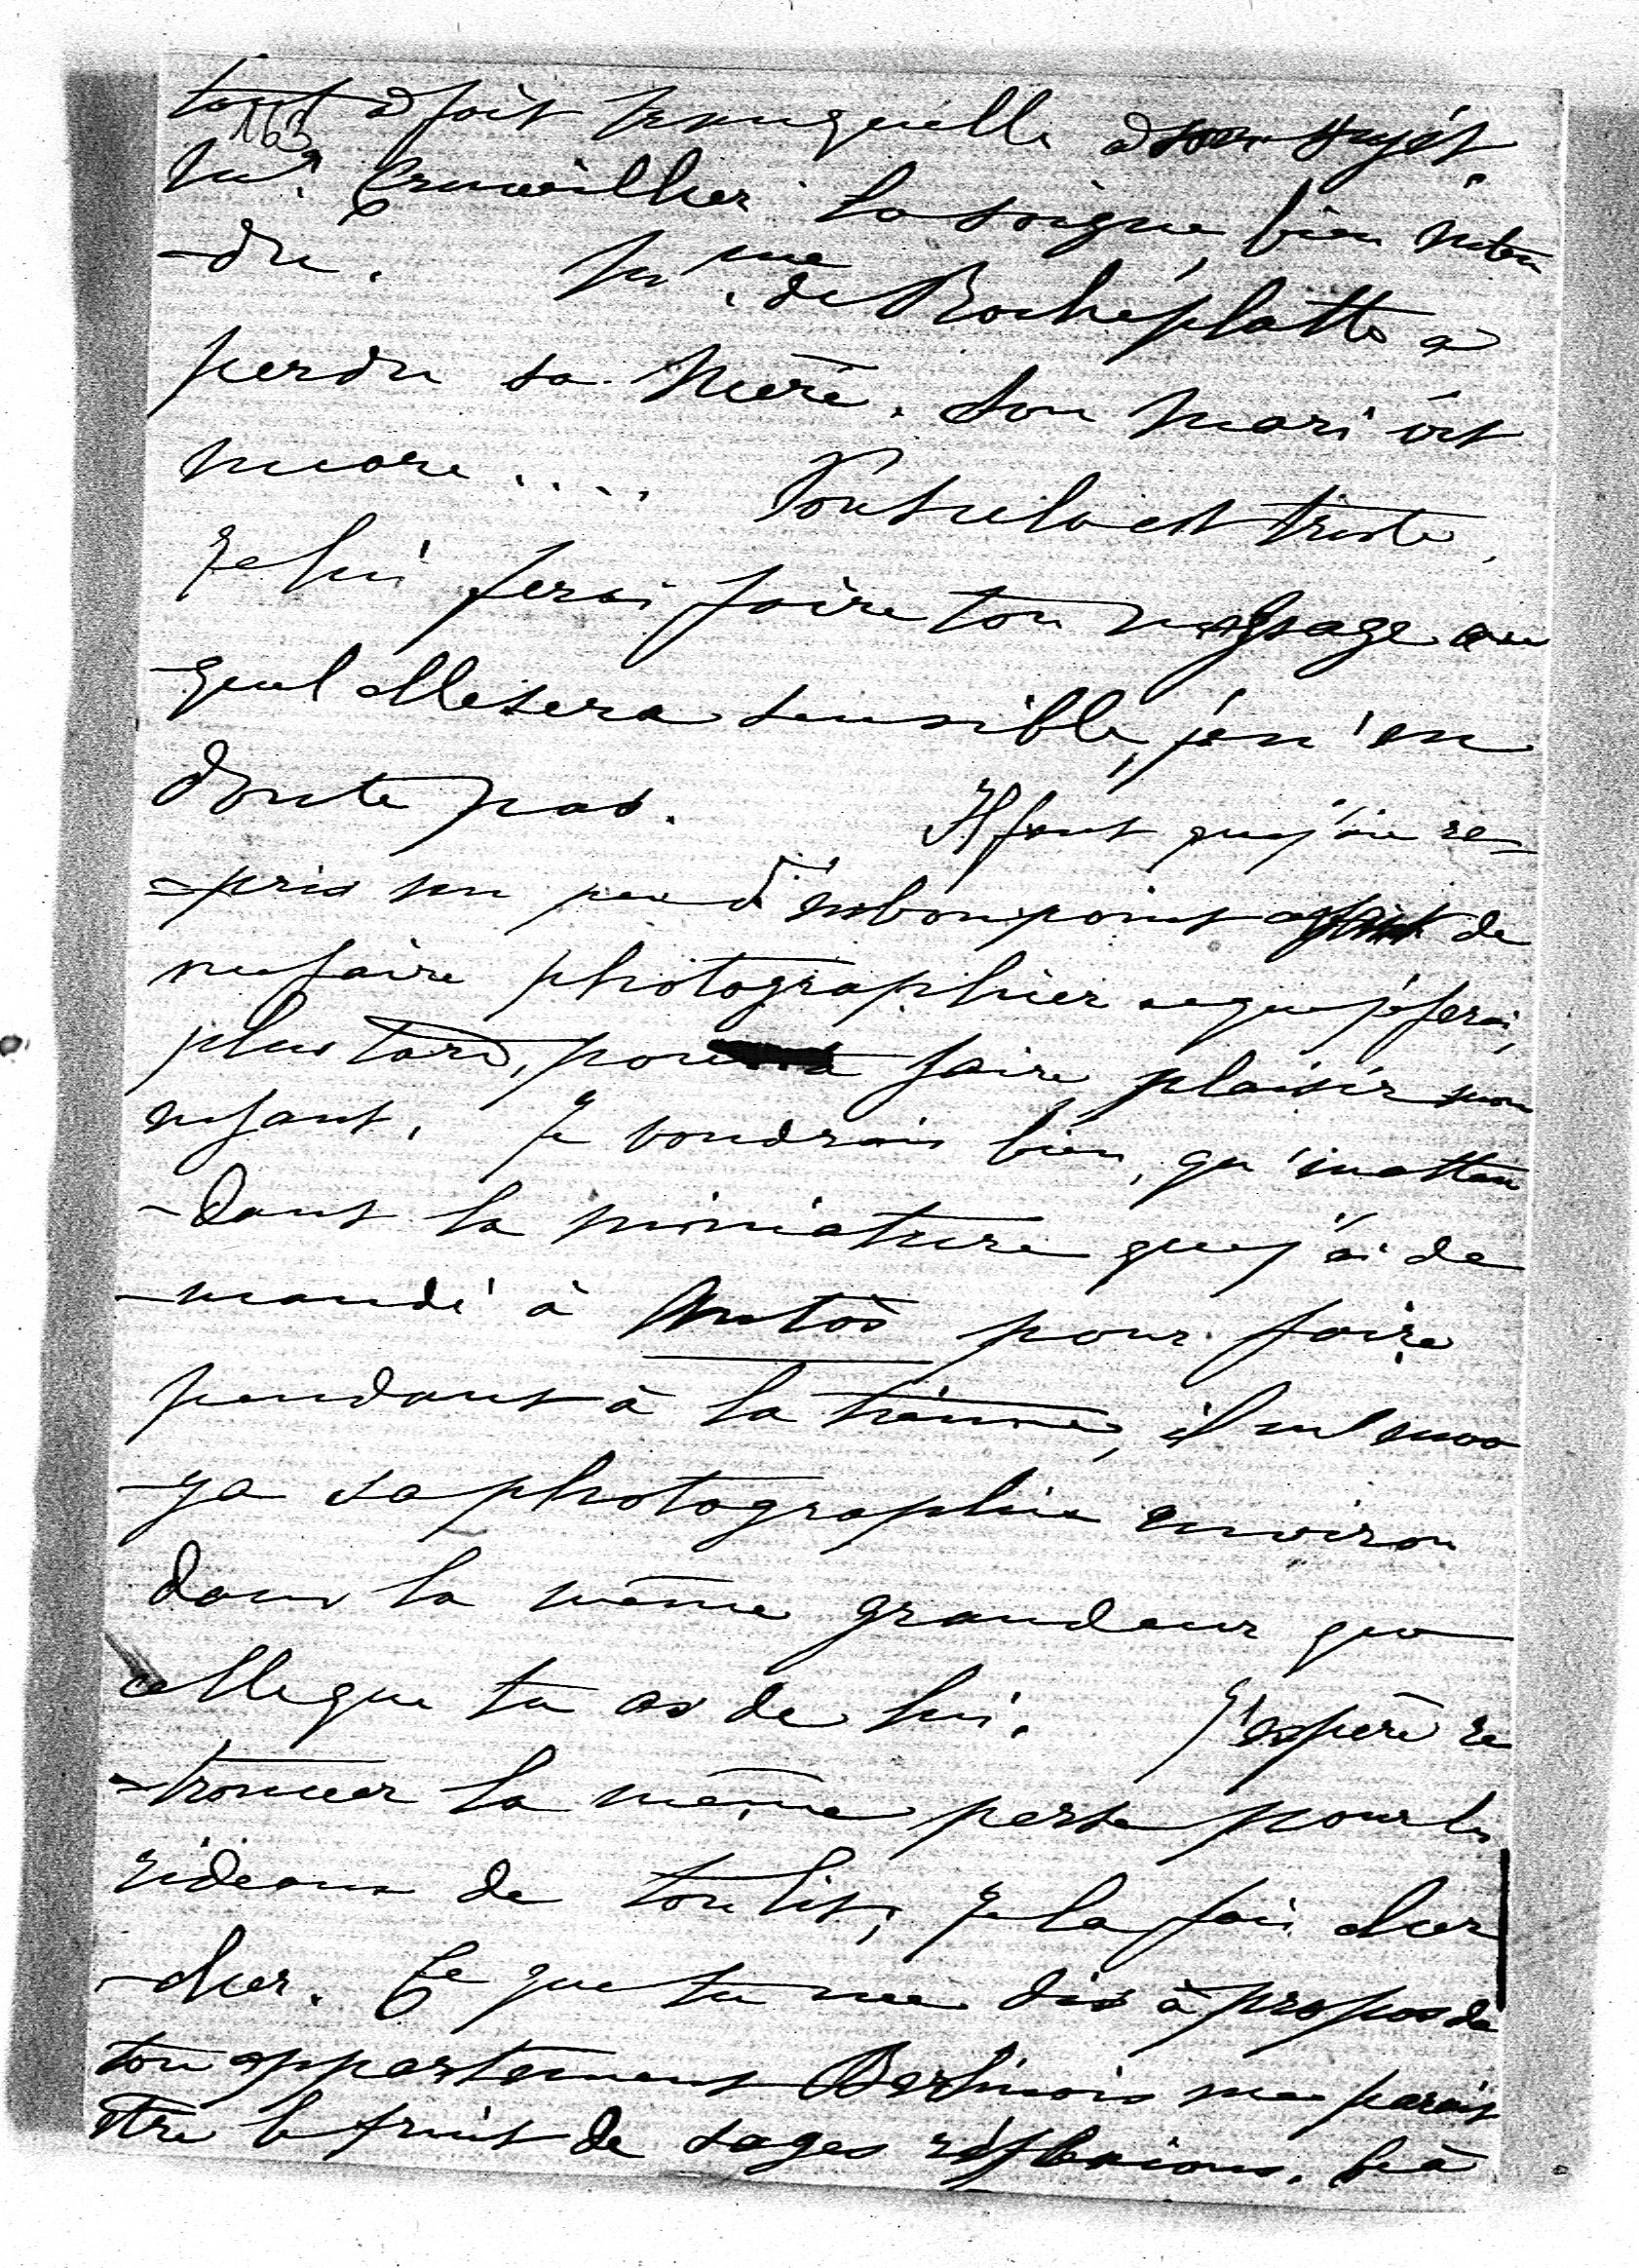 tout à fait tranquille à son sujet.
163
Mr. Cruveilhier la soigne, bien enten
-du. Mme. de Rocheplatte a
perdu sa Mère. Son Mari vit
encore .... Tout cela est triste.
Je lui ferai faire ton message au
-quel elle sera sensible, je n'en
doute pas. Il faut que j'aie re-
-pris un peu d'embonpoint de
me faire photographier ce que je ferai,
plus tard, pour faire plaisir mon
enfant. Je voudrais bien, qu'inatten
-dant la miniature que j'ai de
-mandé à pour faire
pendant à la tienne, il m'envo
-ya sa photographie environ
dans la même grandeur que
celle que tu as de lui. J'espère re
-trouver la même perse pour les
rideaux de ton lit, je la fais cher
-cher. Ce que tu me dis à propos de
ton appartement Berlinois me parait
être le fruit de sages réflexions. Là